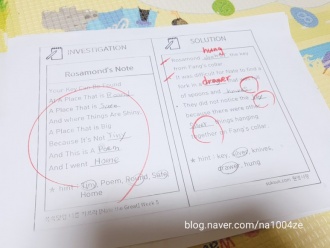 INVESTIGATION
Rosamond's Note
Your Key Can Be Found
At A Place That Is Round
A Place That Is Safe
And where Things Are Shiny
A Place That Is Big
Because It's Not
And This is A Poem
And I went Home
hint : Poem, Round, Shiny
Home
SOLUTION
hung
Rosamond the key
from Fang's collar
It was for Nate to find
drawer
of spoons and
They did not notice the
because there were other
things hanging
together on Fang's collar
hint : key knives,
drawer, hung
blog.naver.com/na1004ze